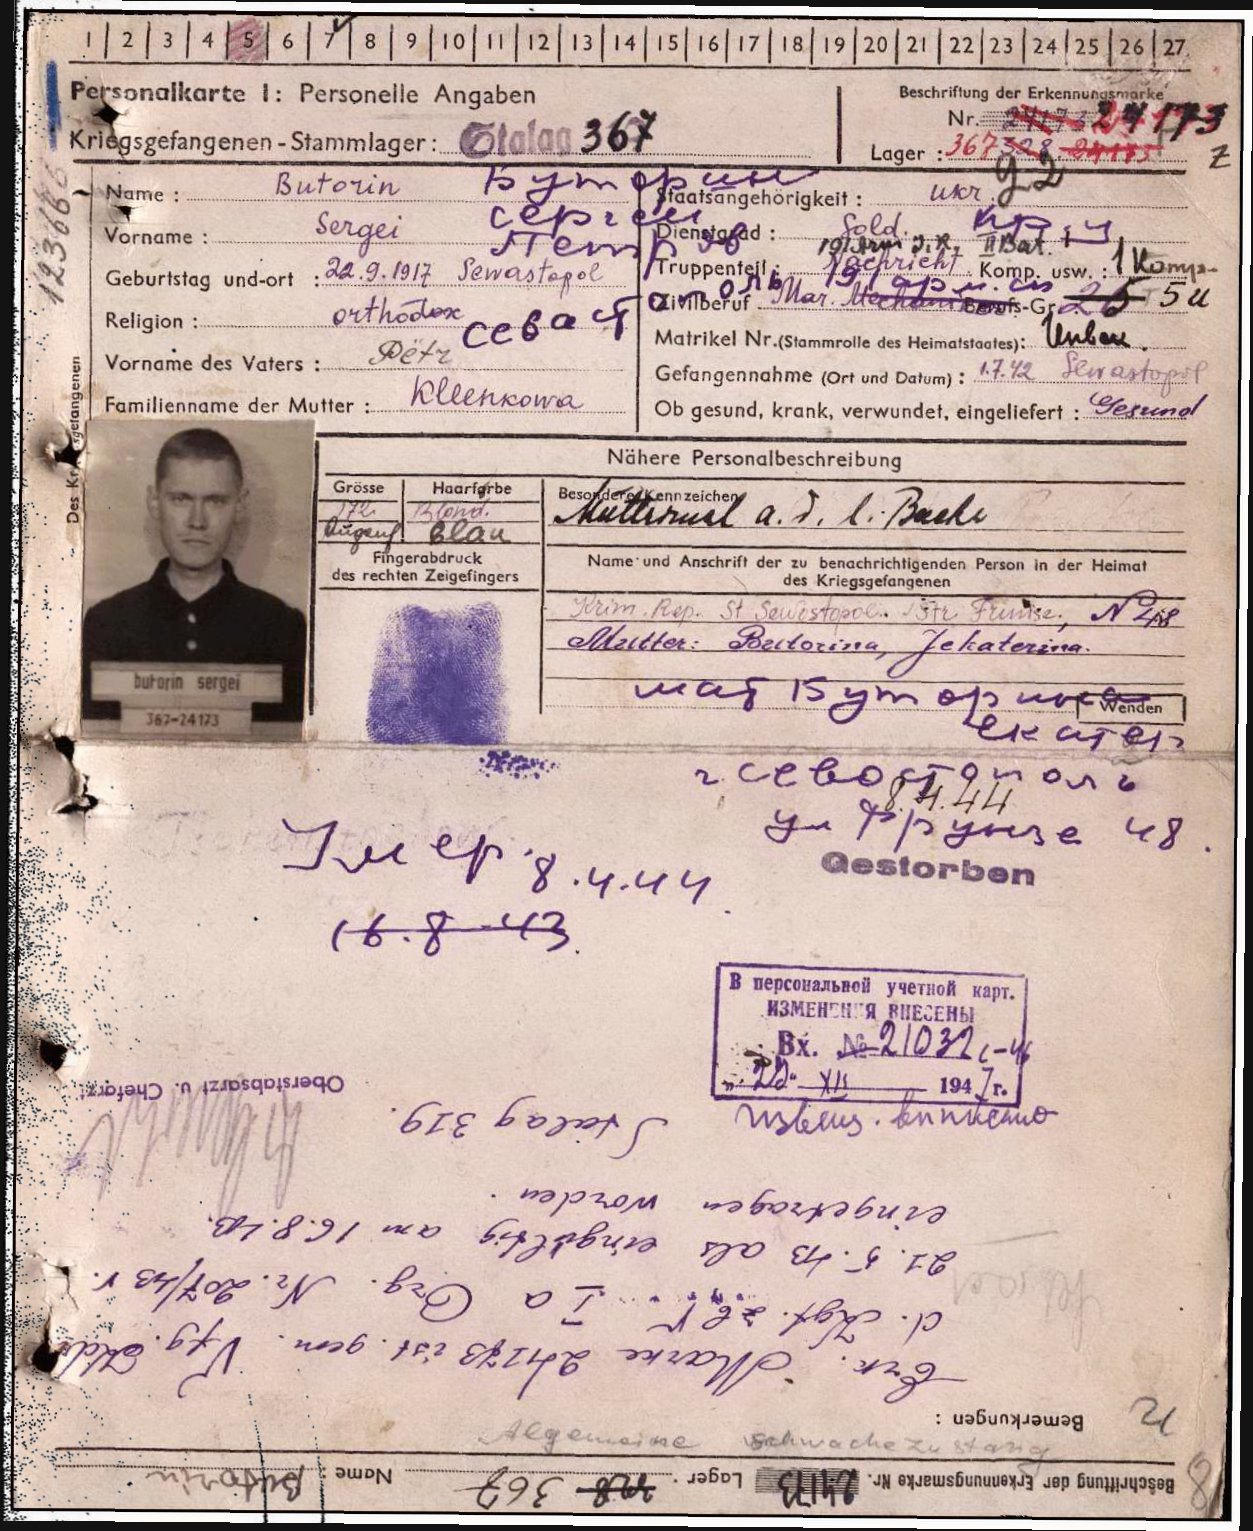 1 2 3 4 5 6 7 8 9 10 11 12 13 14 15 16 17 18 19 20 21 22 23 24 25 26 27
Personalkarte I: Personelle Angaben
Kriegsgefangenen-Stammlager: Stalag 367
Beschriftung der Erkennungsmarke
Nr. 24173
Lager: 367 328 24173
Z
123666
Des Kriegsgefangenen
Name: Butorin Буторин
Vorname: Sergei Сергей
Петров
Geburtstag und-ort: 22.9.1917 Sewastopol
Севастополь
Religion: orthodox
Vorname des Vaters: Pëtr
Familienname der Mutter: Kleenkowa
Staatsangehörigkeit: ukr.
Dienstgrad: Sold.
Truppenteil: Nachricht Komp. usw.: 1 Komp.
191 Arm J.R. II Bat.
Zivilberuf Mar. Mechaniker Berufs-Gr. 25 5u
Matrikel Nr. (Stammrolle des Heimatstaates): Unbek.
Gefangennahme (Ort und Datum): 1.7.42 Sewastopol
Ob gesund, krank, verwundet, eingeliefert: Gesund
Nähere Personalbeschreibung
Grösse 172
Haarfarbe Blond.
Augenf. Blau
Besondere Kennzeichen
Muttermal a. d. l. Backe
Fingerabdruck
des rechten Zeigefingers
Name und Anschrift der zu benachrichtigenden Person in der Heimat
des Kriegsgefangenen
Krim. Rep. St Sewastopol. Str Frunse, N 48
Mutter: Butorina, Jekaterina.
мат Буторина
Екатер
Wenden
butorin sergei
367-24173
г Севостополь
8.4.44
ул Фрунзе 48.
Gestorben
Умер. 8.4.44
16.8.43.
В персональной учетной карт.
ИЗМЕНЕНИЯ ВНЕСЕНЫ
Вх. № 21032с-46
"22" XII 1947г.
извещ. выписано
Beschriftung der Erkennungsmarke Nr. 24173 Lager. 328 367 Name: Butorin
Algemeine schwachezustang
Bemerkungen:
Erk. Marke 24173 ist gem. Vfg. Kdr.
d. Kgf. z.b.V. I a Org. Nr. 207/43 v.
21.5.43 als eingültig am 16.8.43.
eingetragen worden.
Stalag 319.
Oberstabsarzt u. Chefarzt